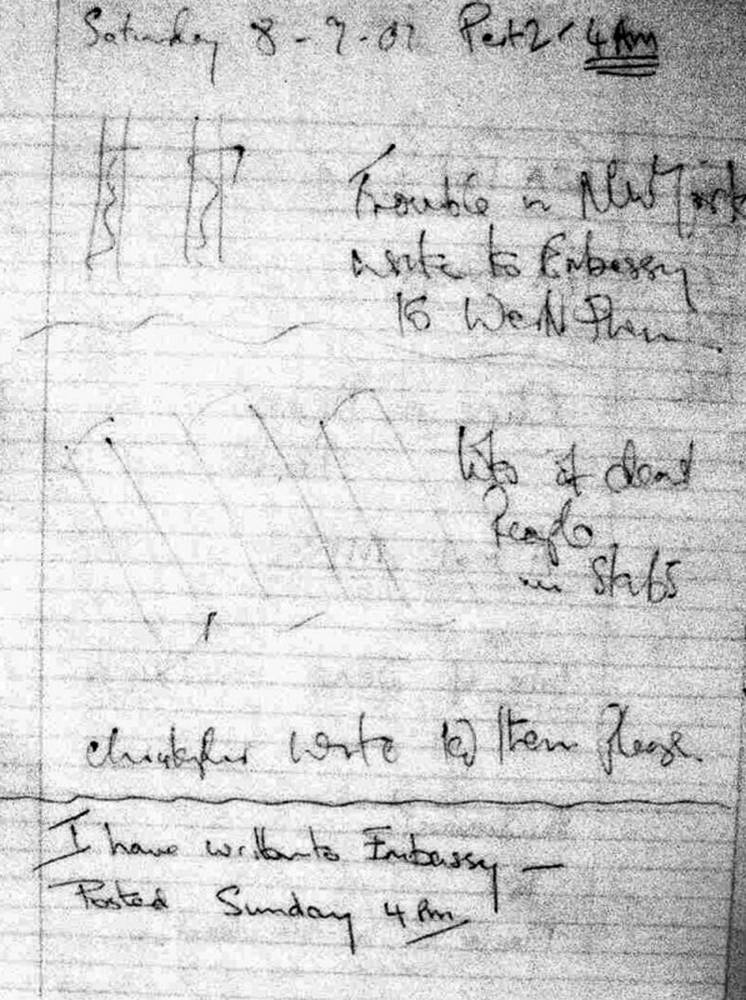 Saturday 8-9-01 Part 2 4 Am
Trouble in New York
write to Embassy
to Warn Them
lots of dead
People
in Stabs
christopher write to Them Please.
I have written to Embassy —
Posted Sunday 4 Pm